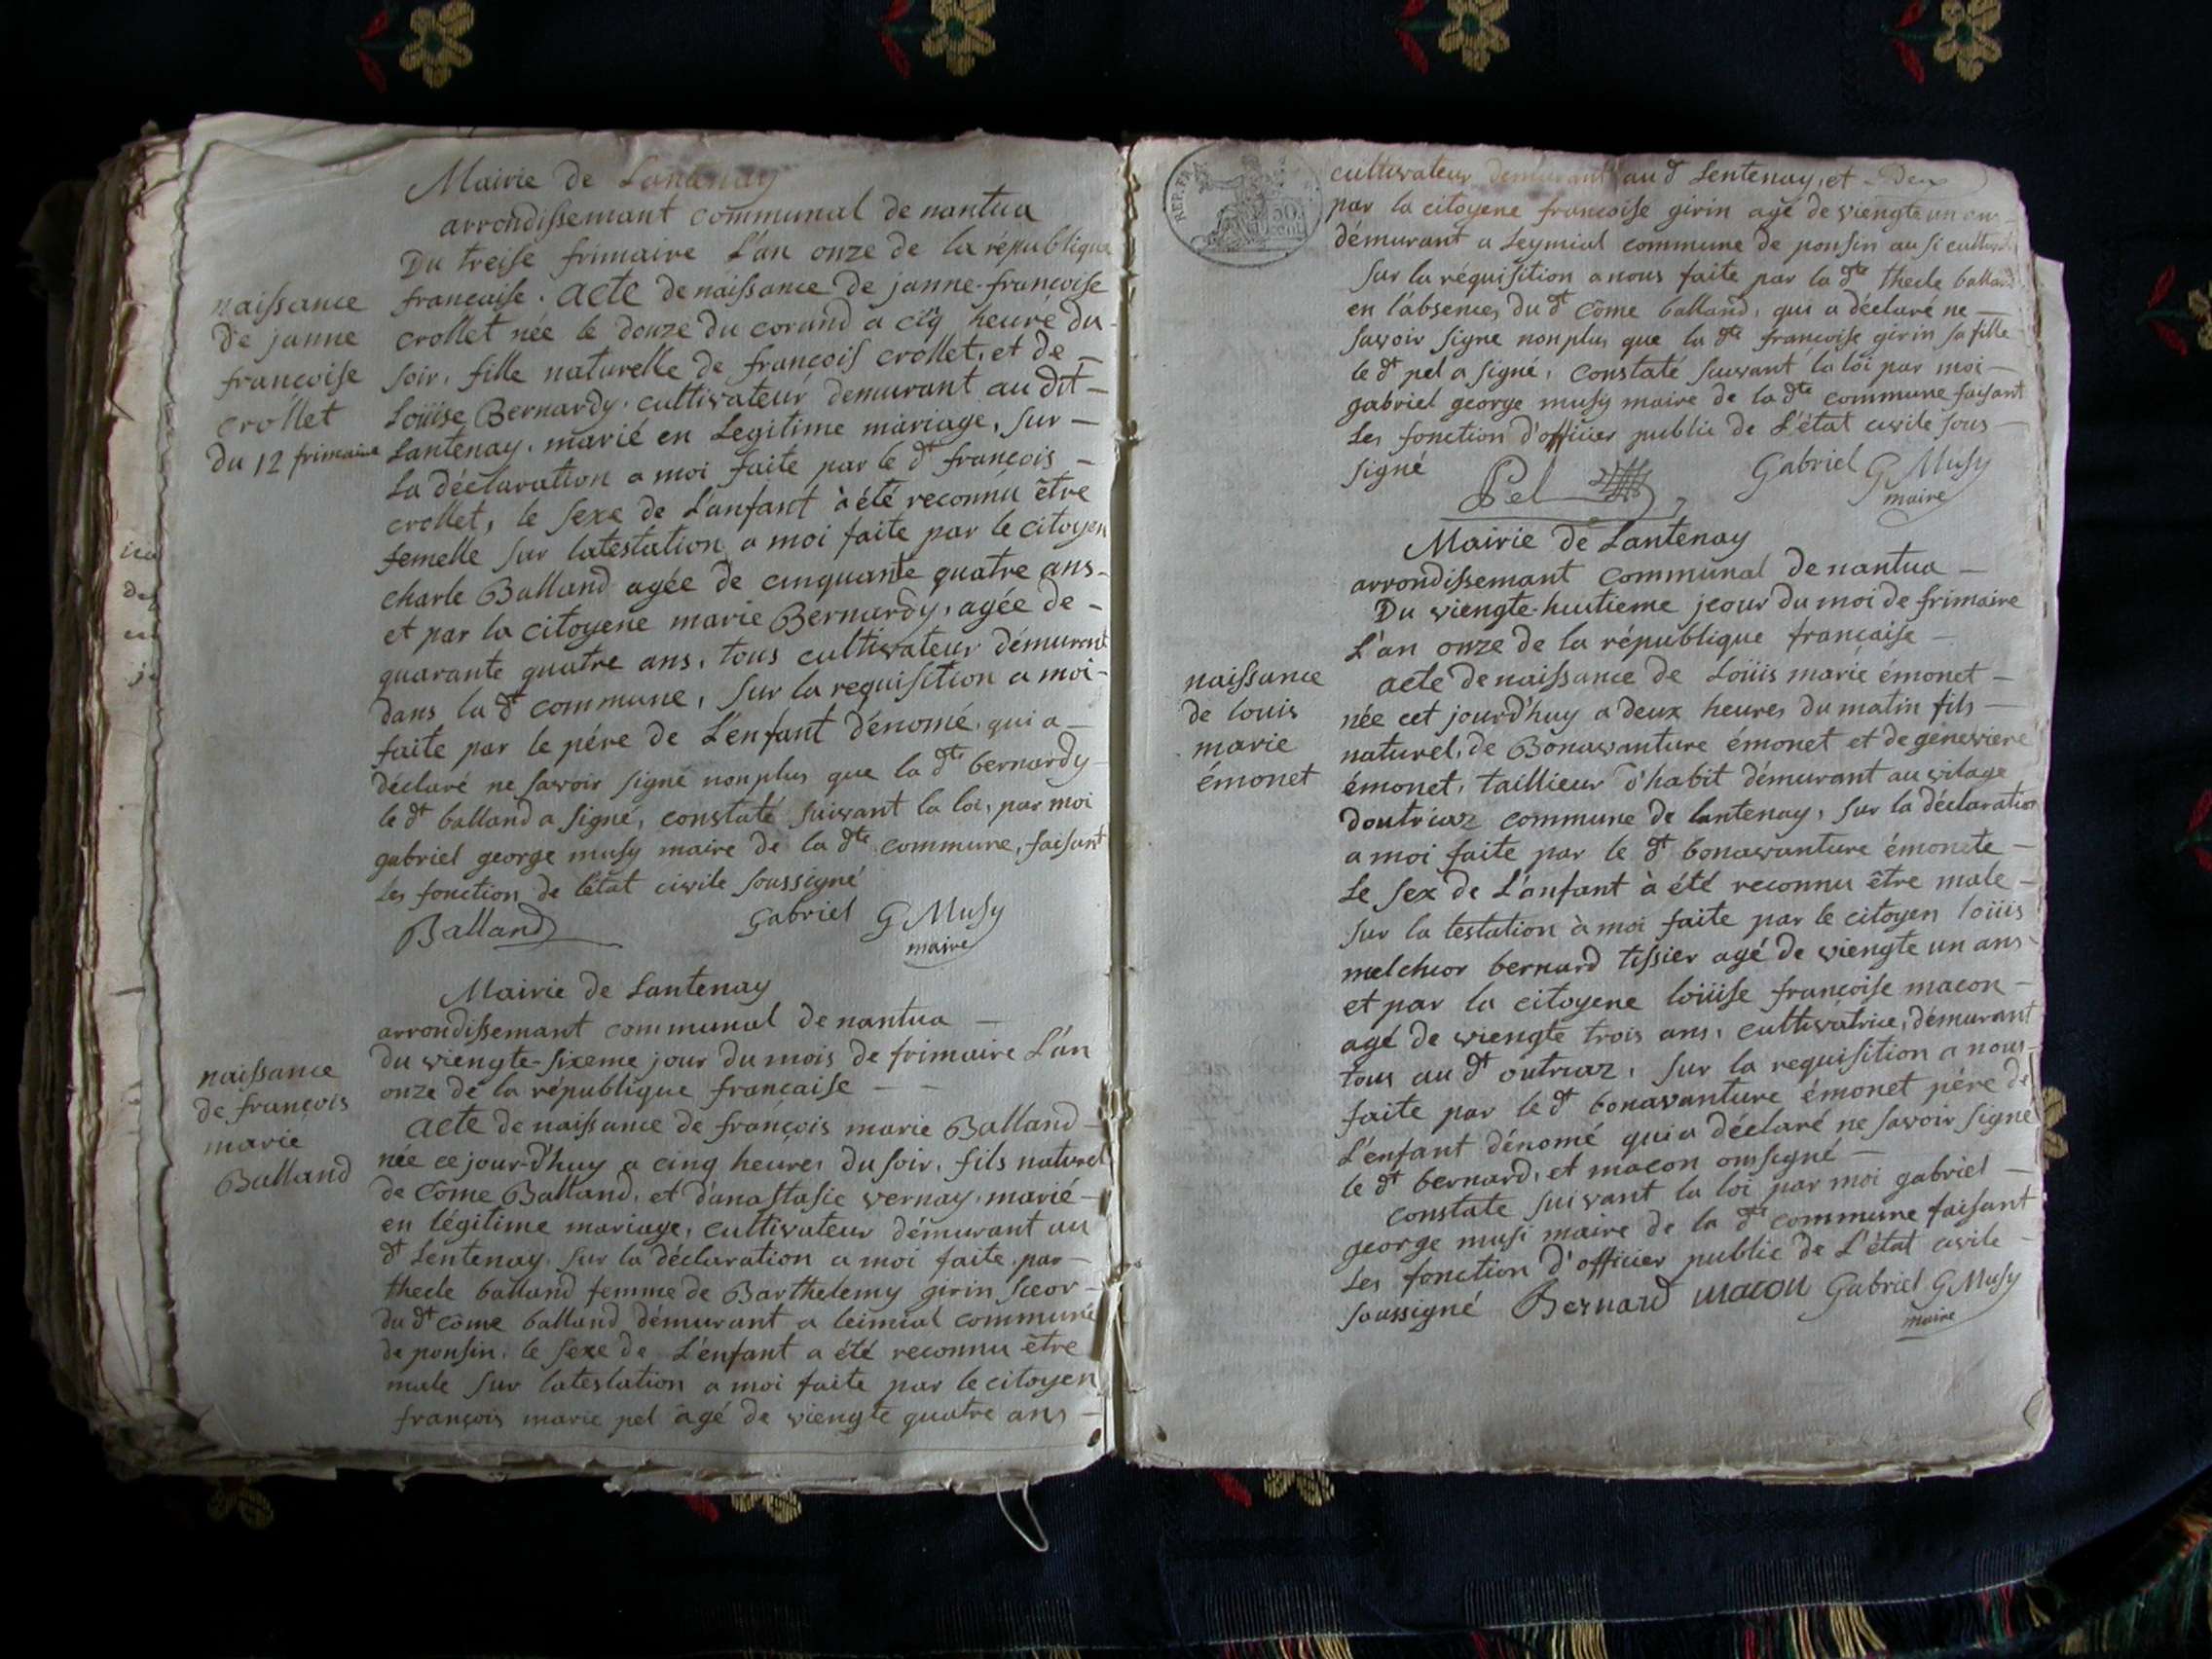 Mairie de Lantenay
arrondissemant communal de nantua
Du treise frimaire L'an onze de la république
naissance
de janne
françoise
crollet
du 12 frimaire
francaise. acte de naissance de janne-françoise
crollet née le douze du corand a ciq heure du
soir, fille naturelle de françois crollet, et de
Loüise Bernardy. cultivateur demurant au dit
Lantenay. marié en Legitime mariage, sur
La déclaration a moi faite par le dt françois
crollet, le sexe de L'anfant à été reconnu être
femelle sur latestation a moi faite par le citoyen
charle Balland agée de cinquante quatre ans
et par la citoyene marie Bernardy, agée de
quarante quatre ans, tous cultivateur démurant
dans la dt commune, sur la requisition a moi
faite par le pére de L'enfant dénomé. qui a
déclaré ne savoir signé non plus que la dte bernardy
le dt balland a signé, constaté suivant la loi, par moi
gabriel george musy maire de la dte commune, faisant
les fonction de l'état civile soussigné
Balland Gabriel G Musy
maire
Mairie de Lantenay
arrondissemant communal de nantua
du viengte-sixeme jour du mois de frimaire L'an
onze de la république francaise
naissance
de françois
marie
Balland
acte de naissance de françois marie Balland
née ce jour-d'huy a cinq heures du soir, fils naturel
de Côme Balland, et d'anastasie vernay, marié
en légitime mariage, cultivateur démurant au
dt Lentenay, sur la déclaration a moi faite par
thecle balland femme de Barthelemy girin sœor
du dt côme balland démurant a leimial commune
de ponsin, le sexe de L'enfant a été reconnu être
male sur latestation a moi faite par le citoyen
françois marie pel âgé de viengte quatre ans
REP. FRA
50
cent
cultivateur demurant au dt Lentenay, et
par la citoyene francoise girin agé de viengte un ans
démurant a Leymial commune de ponsin
sur la réquisition a nous faite par la dte thecle balland
en l'absence, du dt côme balland, qui a déclaré ne
savoir signe non plus que la dte francoise girin sa fille
le dt pel a signé, constaté suivant la loi par moi
gabriel george musy maire de la dte commune faisant
Les fonction d'officier public de L'état civile sous
signé
Pel Gabriel G Musy
maire
Mairie de Lantenay
arrondissemant communal de nantua
Du viengte-huitieme jeour du moi de frimaire
L'an onze de la république française
naissance
de louis
marie
émonet
acte de naissance de Loüis marie émonet
née cet jourd'huy a deux heures du matin fils
naturel, de Bonavanture émonet et de genevieve
émonet, taillieur d'habit démurant au vilage
doutriaz commune de lantenay, sur la déclaration
a moi faite par le dt bonavanture émonete
Le sex de L'anfant à été reconnu être male
sur la testation à moi faite par le citoyen loüis
melchior bernard tissier agé de viengte un ans
et par la citoyene loüise françoise macon
agé de viengte trois ans, cultivatrice, démurant
tous au dt outriaz, sur la requisition a nous
faite par le dt bonavanture émonet pére de
L'enfant dénomé qui a déclaré ne savoir signé
le dt bernard, et macon onsigné
constate suivant la loi par moi gabriel
george musi maire de la dte commune faisant
Les fonction d'officier public de L'état civile
soussigné Bernard macon Gabriel G Musy
maire